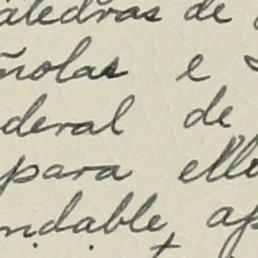 atedras de
ñolas e
deral de
para ello
ndable ap